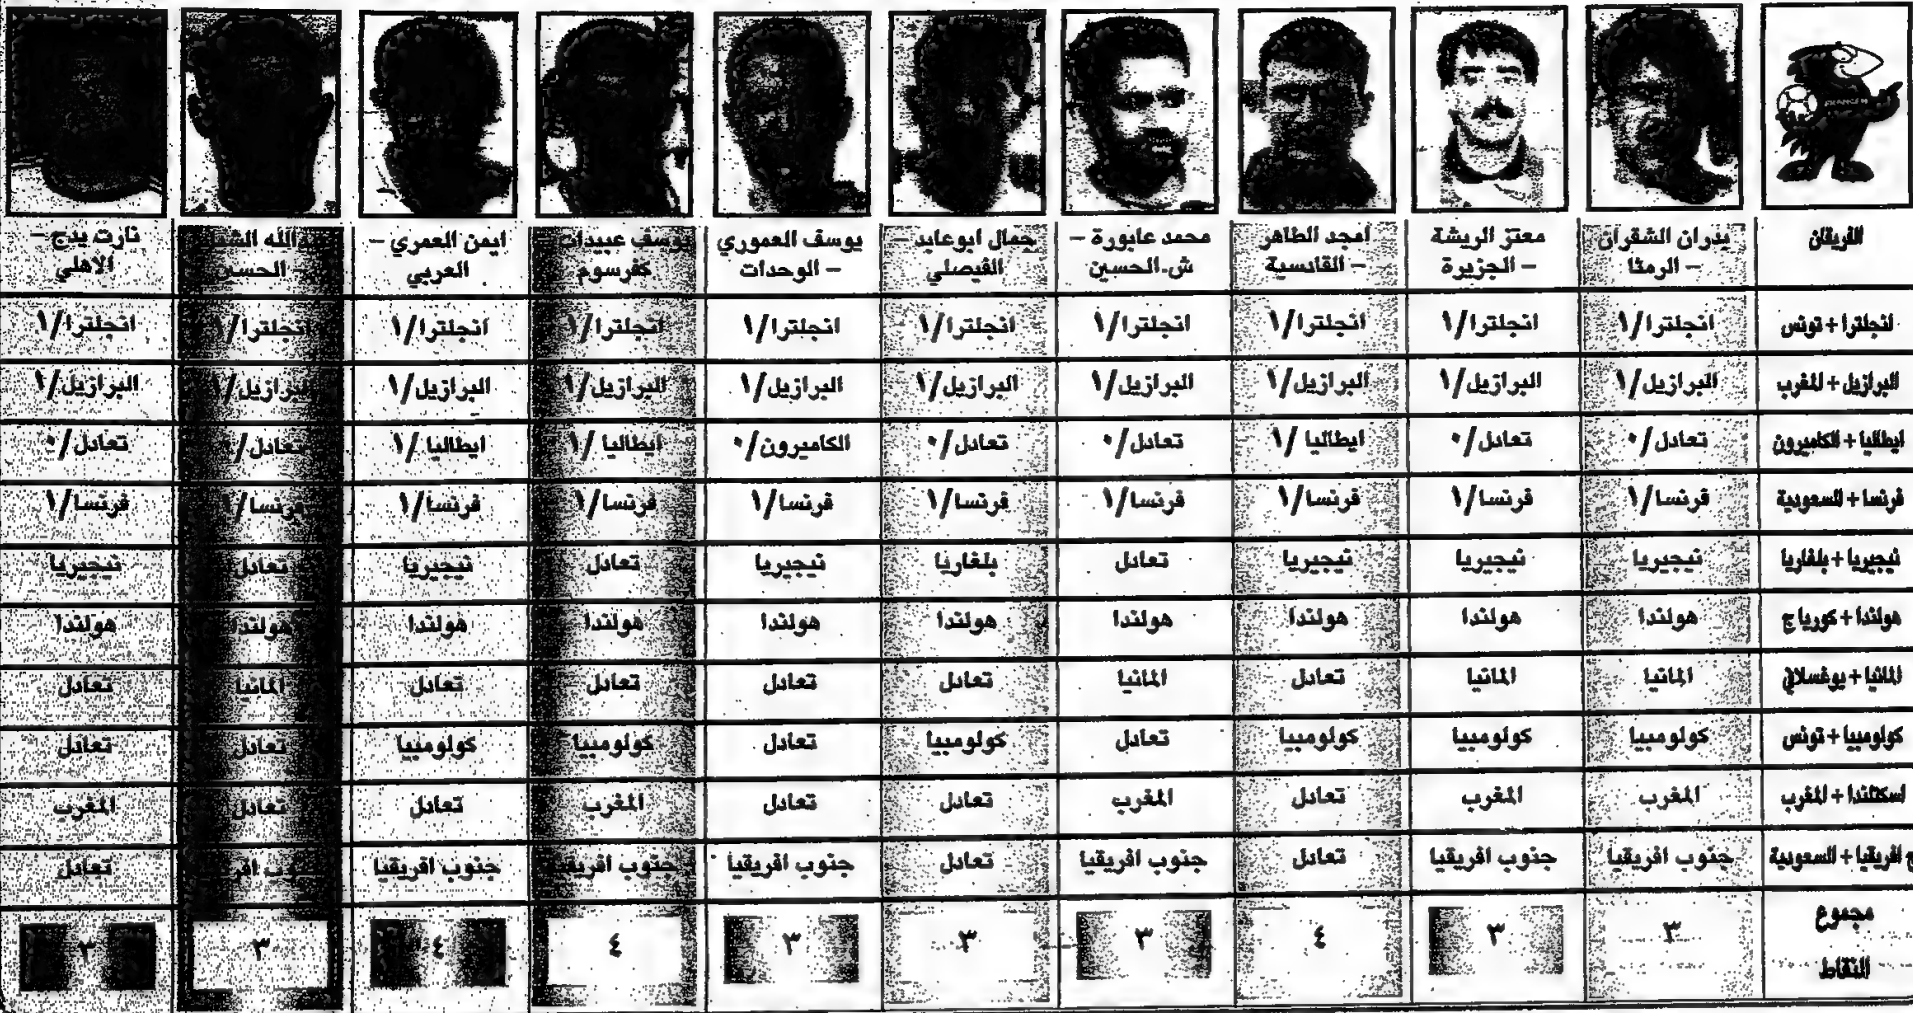 الفريقان
بدران الشقران – الرمثا
معتز الريشة – الجزيرة
امجد الطاهر – القادسية
محمد عابورة – ش.الحسين
جمال ابوعابد – الفيصلي
يوسف العموري – الوحدات
يوسف عبيدات كفرسوم
ايمن العمري – العربي
الحسين
نارت يدج – الاهلي
انجلترا + تونس انجلترا/١ انجلترا/١ انجلترا/١ انجلترا/١ انجلترا/١ انجلترا/١ انجلترا/١ انجلترا/١ انجلترا/١ انجلترا/١
البرازيل + المغرب البرازيل/١ البرازيل/١ البرازيل/١ البرازيل/١ البرازيل/١ البرازيل/١ البرازيل/١ البرازيل/١ البرازيل/١ البرازيل/١
ايطاليا + الكاميرون تعادل/٠ تعادل/٠ ايطاليا /١ تعادل/٠ تعادل/٠ الكاميرون/٠ ايطاليا /١ ايطاليا /١ تعادل/٠ تعادل/٠
فرنسا + السعودية فرنسا/١ فرنسا/١ فرنسا/١ فرنسا/١ فرنسا/١ فرنسا/١ فرنسا/١ فرنسا/١ فرنسا/١ فرنسا/١
نيجيريا + بلغاريا نيجيريا نيجيريا نيجيريا تعادل بلغاريا نيجيريا تعادل نيجيريا تعادل نيجيريا
هولندا + كوريا ج هولندا هولندا هولندا هولندا هولندا هولندا هولندا هولندا هولندا هولندا
المانيا + يوغسلافي المانيا المانيا تعادل المانيا تعادل تعادل تعادل تعادل المانيا تعادل
كولومبيا + تونس كولومبيا كولومبيا كولومبيا تعادل كولومبيا تعادل كولومبيا كولومبيا تعادل تعادل
اسكتلندا + المغرب المغرب المغرب تعادل المغرب تعادل تعادل المغرب تعادل تعادل المغرب
ج افريقيا + السعودية جنوب افريقيا جنوب افريقيا تعادل جنوب افريقيا تعادل جنوب افريقيا جنوب افريقيا جنوب افريقيا جنوب افريقيا تعادل
مجموع النقاط ٣ ٣ ٤ ٣ ٣ ٣ ٤ ٤ ٣ ٣